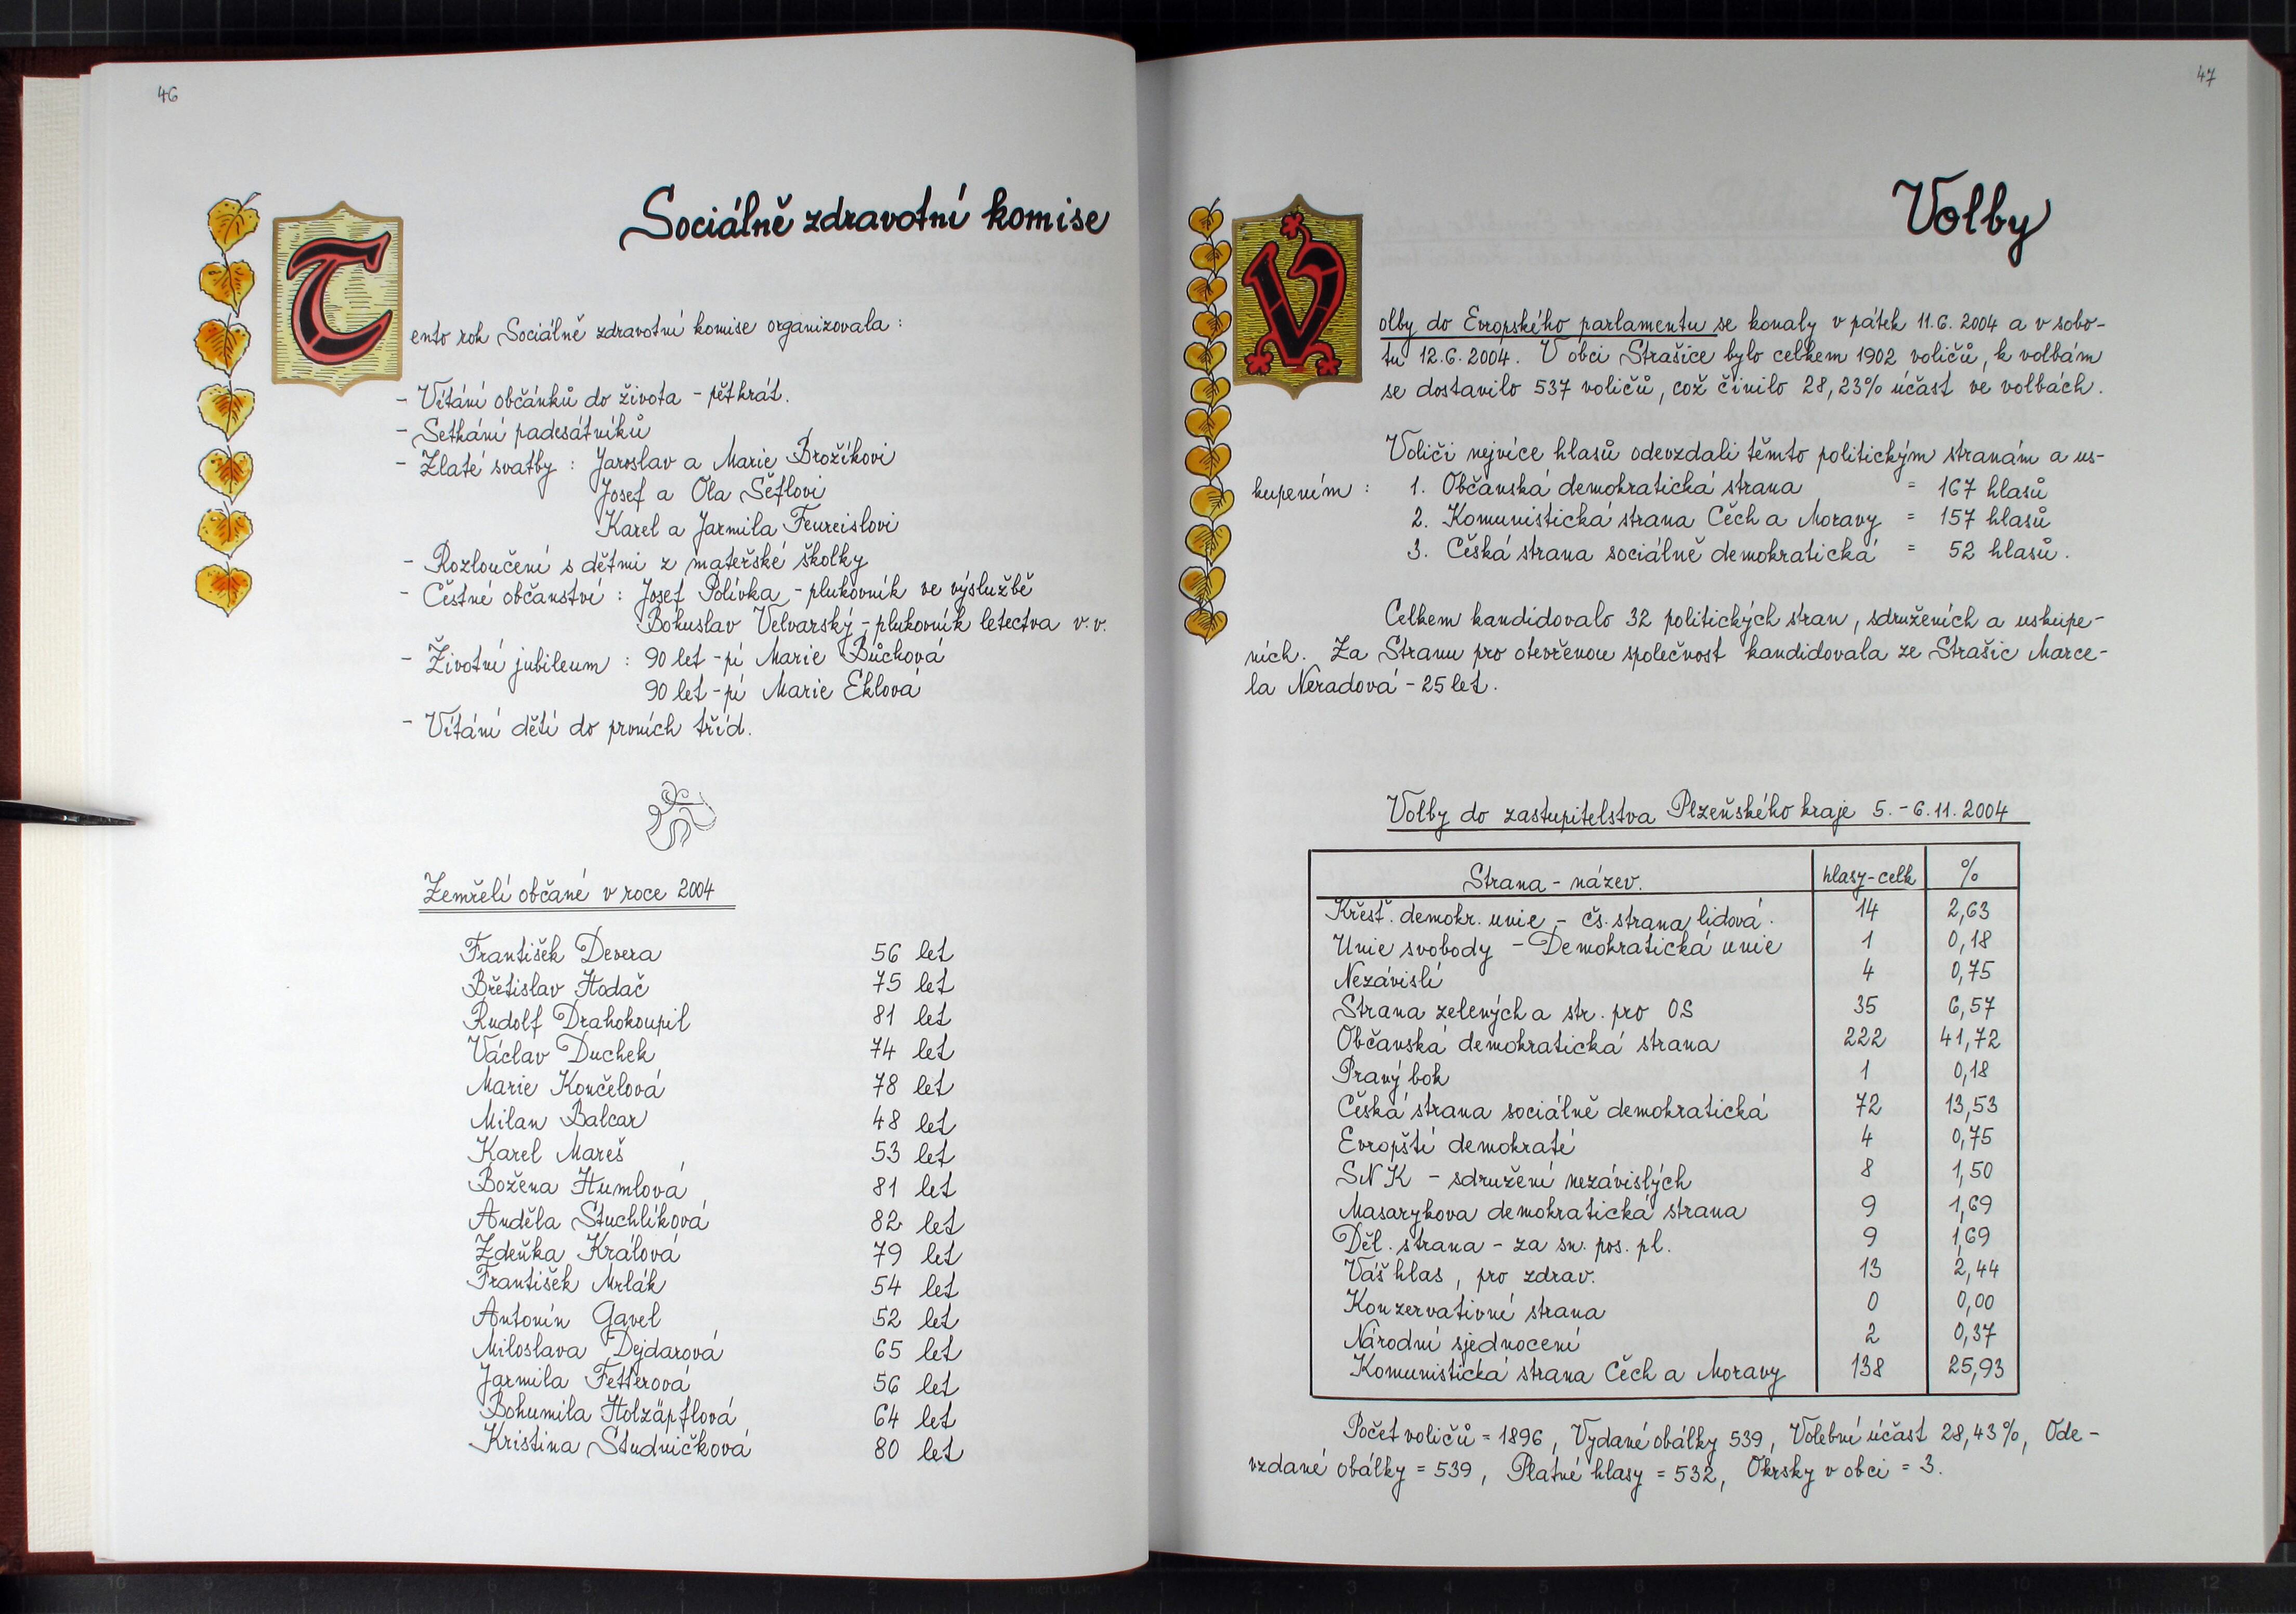 46
Sociálně zdravotní komise
Tento rok Sociálně zdravotní komise organizovala :
- Vítání občánků do života - pětkrát.
- Setkání padesátníků
- Zlaté svatby : Jaroslav a Marie Brožíkovi
Josef a Ola Šeflovi
Karel a Jarmila Feureislovi
- Rozloučení s dětmi z mateřské školky
- Čestné občanství : Josef Polívka - plukovník ve výslužbě
Bohuslav Velvarský - plukovník letectva v.v.
- Životní jubileum : 90 let - pí Marie Bůchová
90 let - pí Marie Eklová
- Vítání dětí do prvních tříd.
Zemřelí občané v roce 2004
František Devera 56 let
Břetislav Hodač 75 let
Rudolf Drahokoupil 81 let
Václav Duchek 74 let
Marie Končelová 78 let
Milan Balcar 48 let
Karel Mareš 53 let
Božena Humlová 81 let
Anděla Stuchlíková 82 let
Zdeňka Králová 79 let
František Mrlák 54 let
Antonín Gavel 52 let
Miloslava Dejdarová 65 let
Jarmila Fetterová 56 let
Bohumila Holzäpflová 64 let
Kristina Studničková 80 let
47
Volby
Volby do Evropského parlamentu se konaly v pátek 11.6. 2004 a v sobo-
tu 12.6.2004. V obci Strašice bylo celkem 1902 voličů, k volbám
se dostavilo 537 voličů, což činilo 28,23% účast ve volbách.
Voliči nejvíce hlasů odevzdali těmto politickým stranám a us-
kupením : 1. Občanská demokratická strana = 167 hlasů
2. Komunistická strana Čech a Moravy = 157 hlasů
3. Česká strana sociálně demokratická = 52 hlasů.
Celkem kandidovalo 32 politických stran, sdruženích a uskupe-
ních. Za Stranu pro otevřenou společnost kandidovala ze Strašic Marce-
la Neradová - 25 let.
Volby do zastupitelstva Plzeňského kraje 5. - 6.11.2004
Strana - název. hlasy-celk %
Křesť. demokr. unie - čs. strana lidová. 14 2,63
Unie svobody - Demokratická unie 1 0,18
Nezávislí 4 0,75
Strana zelených a str. pro OS 35 6,57
Občanská demokratická strana 222 41,72
Pravý bok 1 0,18
Česká strana sociálně demokratická 72 13,53
Evropští demokraté 4 0,75
SNK - sdružení nezávislých 8 1,50
Masarykova demokratická strana 9 1,69
Děl. strana - za sn. pos. pl. 9 1,69
Váš hlas, pro zdrav. 13 2,44
Konzervativní strana 0 0,00
Národní sjednocení 2 0,37
Komunistická strana Čech a Moravy 138 25,93
Počet voličů = 1896, Vydané obálky 539, Volební účast 28,43%, Ode-
vzdané obálky = 539, Platné hlasy = 532, Okrsky v obci = 3.